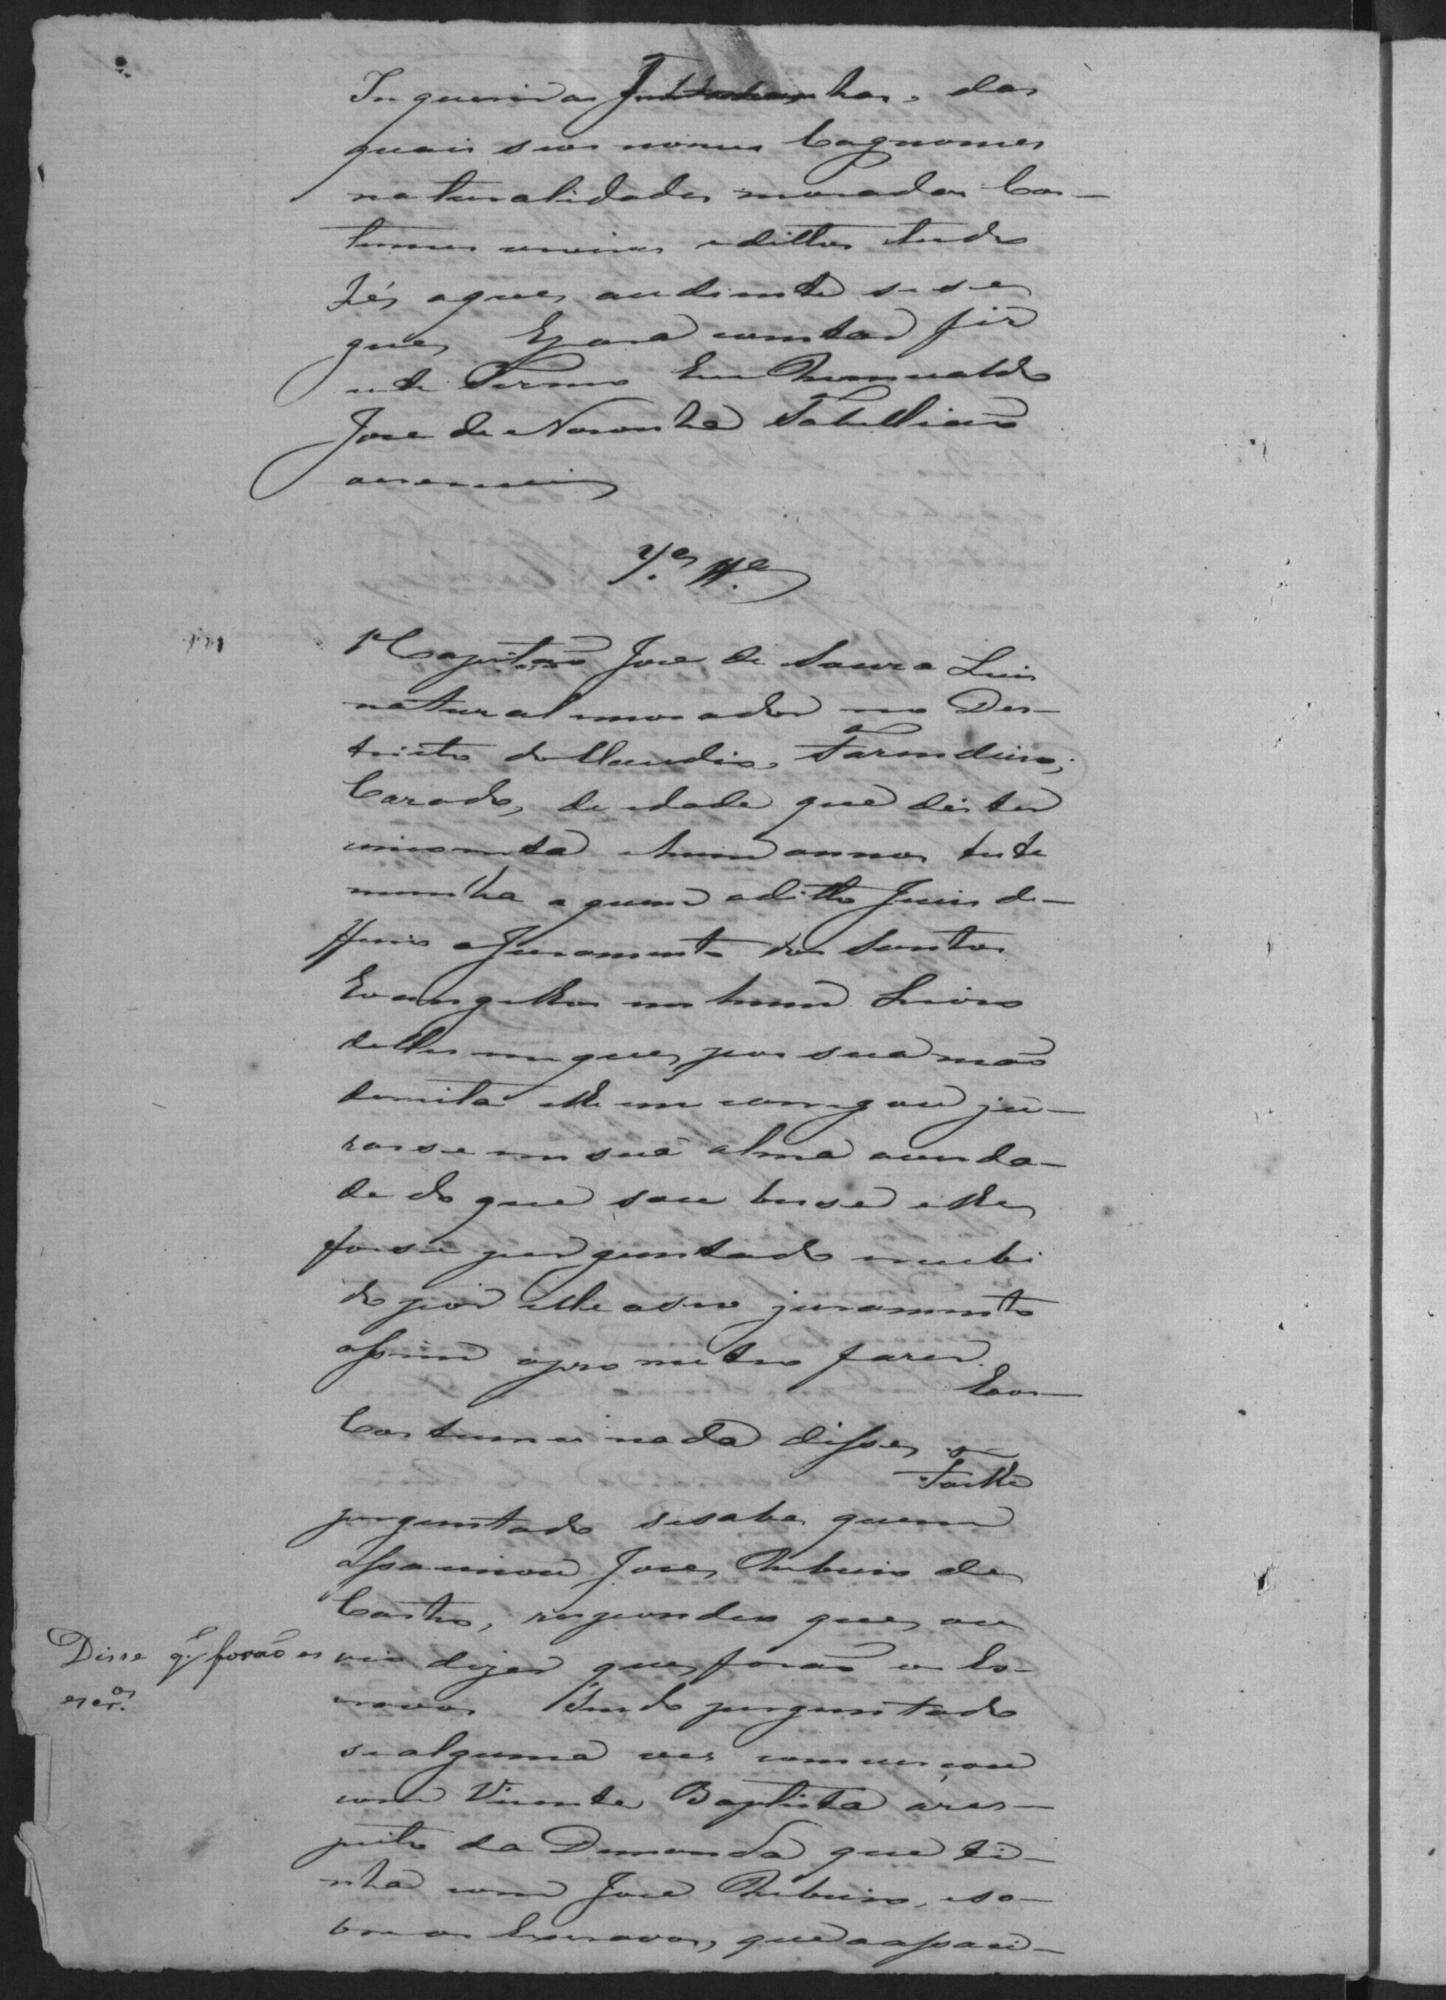 Inqueridas Testemunhas, das
quais seos nomes Cognomes
naturalidades moradas Cos-
tumes
e dittos tudo
hé o que ao diente se se
gue, E para constar fis
este Termo Eu Romualdo
Jose de Noronha Tabelliaõ
escrevi
1ª Tª
Capitaõ Jose de Souza Luis
natural morador no Des-
tricto do Claudio, Fazendeiro,
Cazado, de idade que dis ter
cincoenta e hum annos teste
munha a quem o ditto Juis de-
ffirio o Juramento dos Santos
Evangelhos em hum Livro
delles em que pos sua maõ
dereita e lhe encarregou ju-
rasse em sua alma averda-
de do que soubesse e lhe
fosse perguntado e recebi
do por elle o seo juramento
assim o prometeo fazer.
E aos
Costumes nada disse, e
Sendo lhe
perguntado se sabe quem
assacinou Jose Ribeiro de
Castro, respondeo que, ou
vio dizer que foraõ os Es-
cravos. Sendo perguntado
Disse q. foraõ os
escr.os
se alguma ves conversou
com Vicente Baptista áres-
peito da Demanda que ti-
nha com Jose Ribeiro, e so-
bre os Escravos, que o assaci-